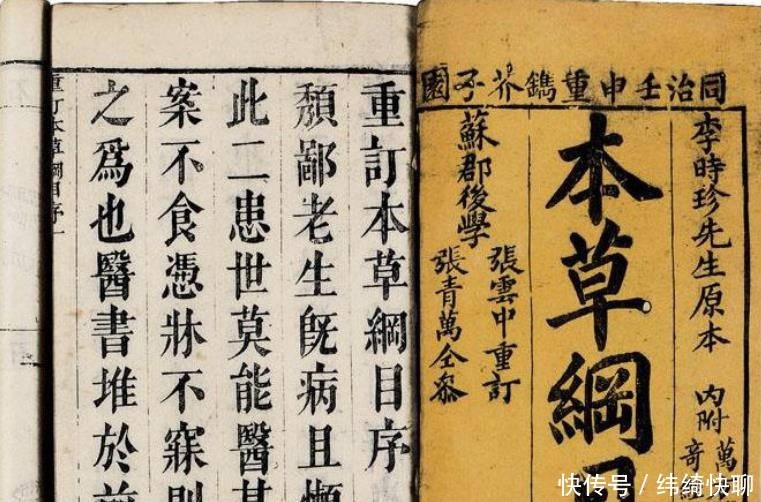 同治壬申重鐫芥子園
李時珍先生原本 內附萬
奇
本草綱目
蘇郡後學
張雲中重訂
張青萬仝參
重訂本草綱目序
頽鄙老生既病且懶
此二患世莫能醫其
案不食憑牀不寐則
之爲也醫書堆於前
重訂本草綱目序一
快传号/纬绮快聊